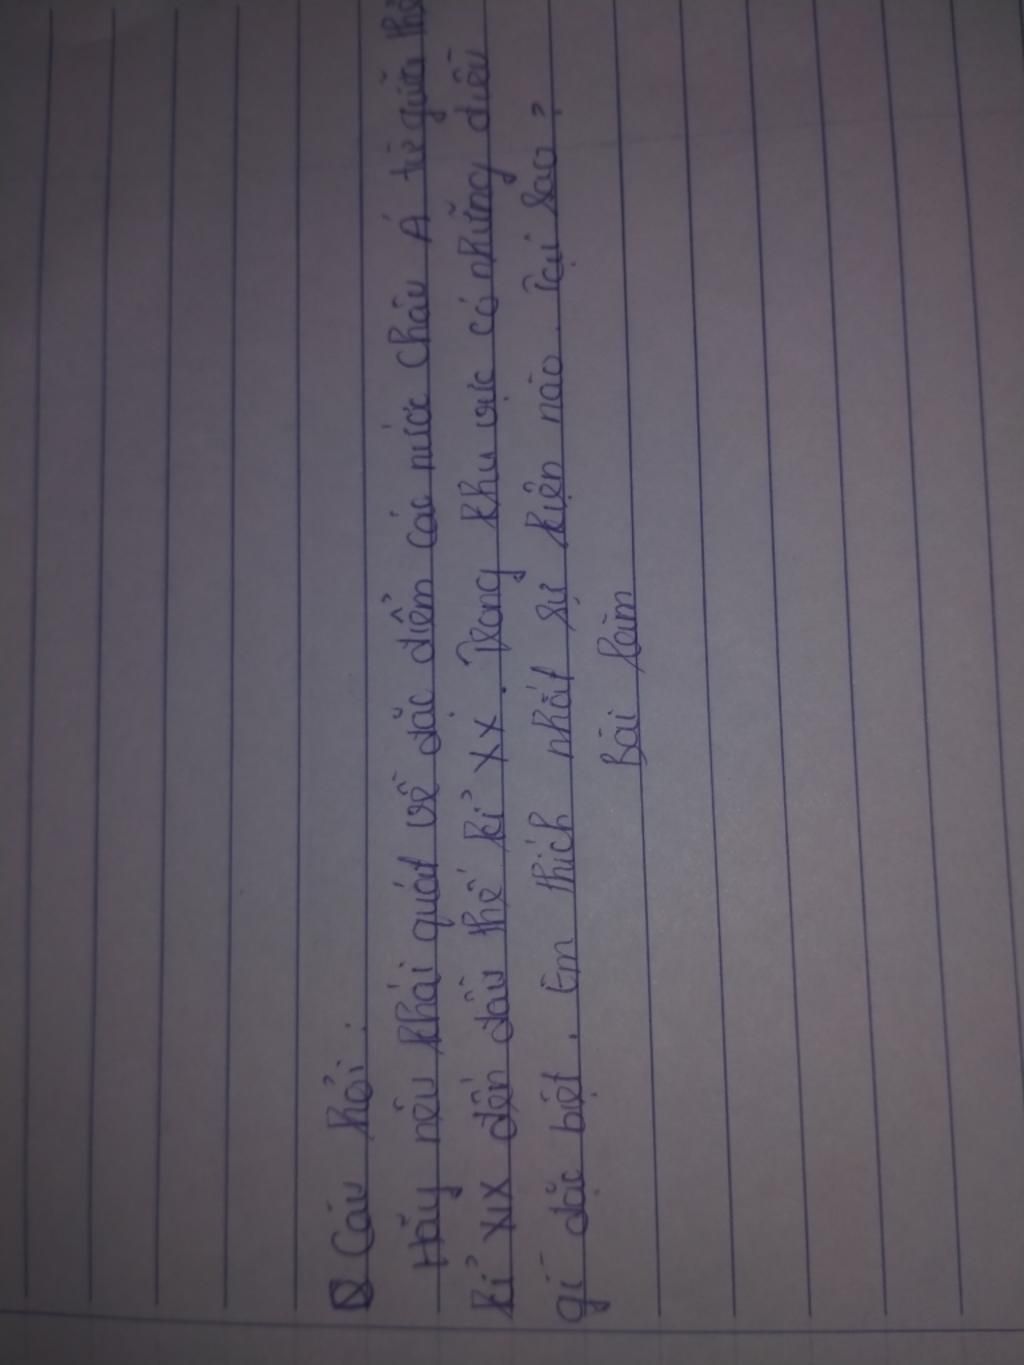 Câu hỏi:
Hãy nêu khái quát về đặc điểm các nước Châu Á từ giữa thế
kỉ XIX đến đầu thế kỉ XX. Trong khu vực có những điều
gì đặc biệt. Em thích nhất sự kiện nào. Tại sao?
Bài làm